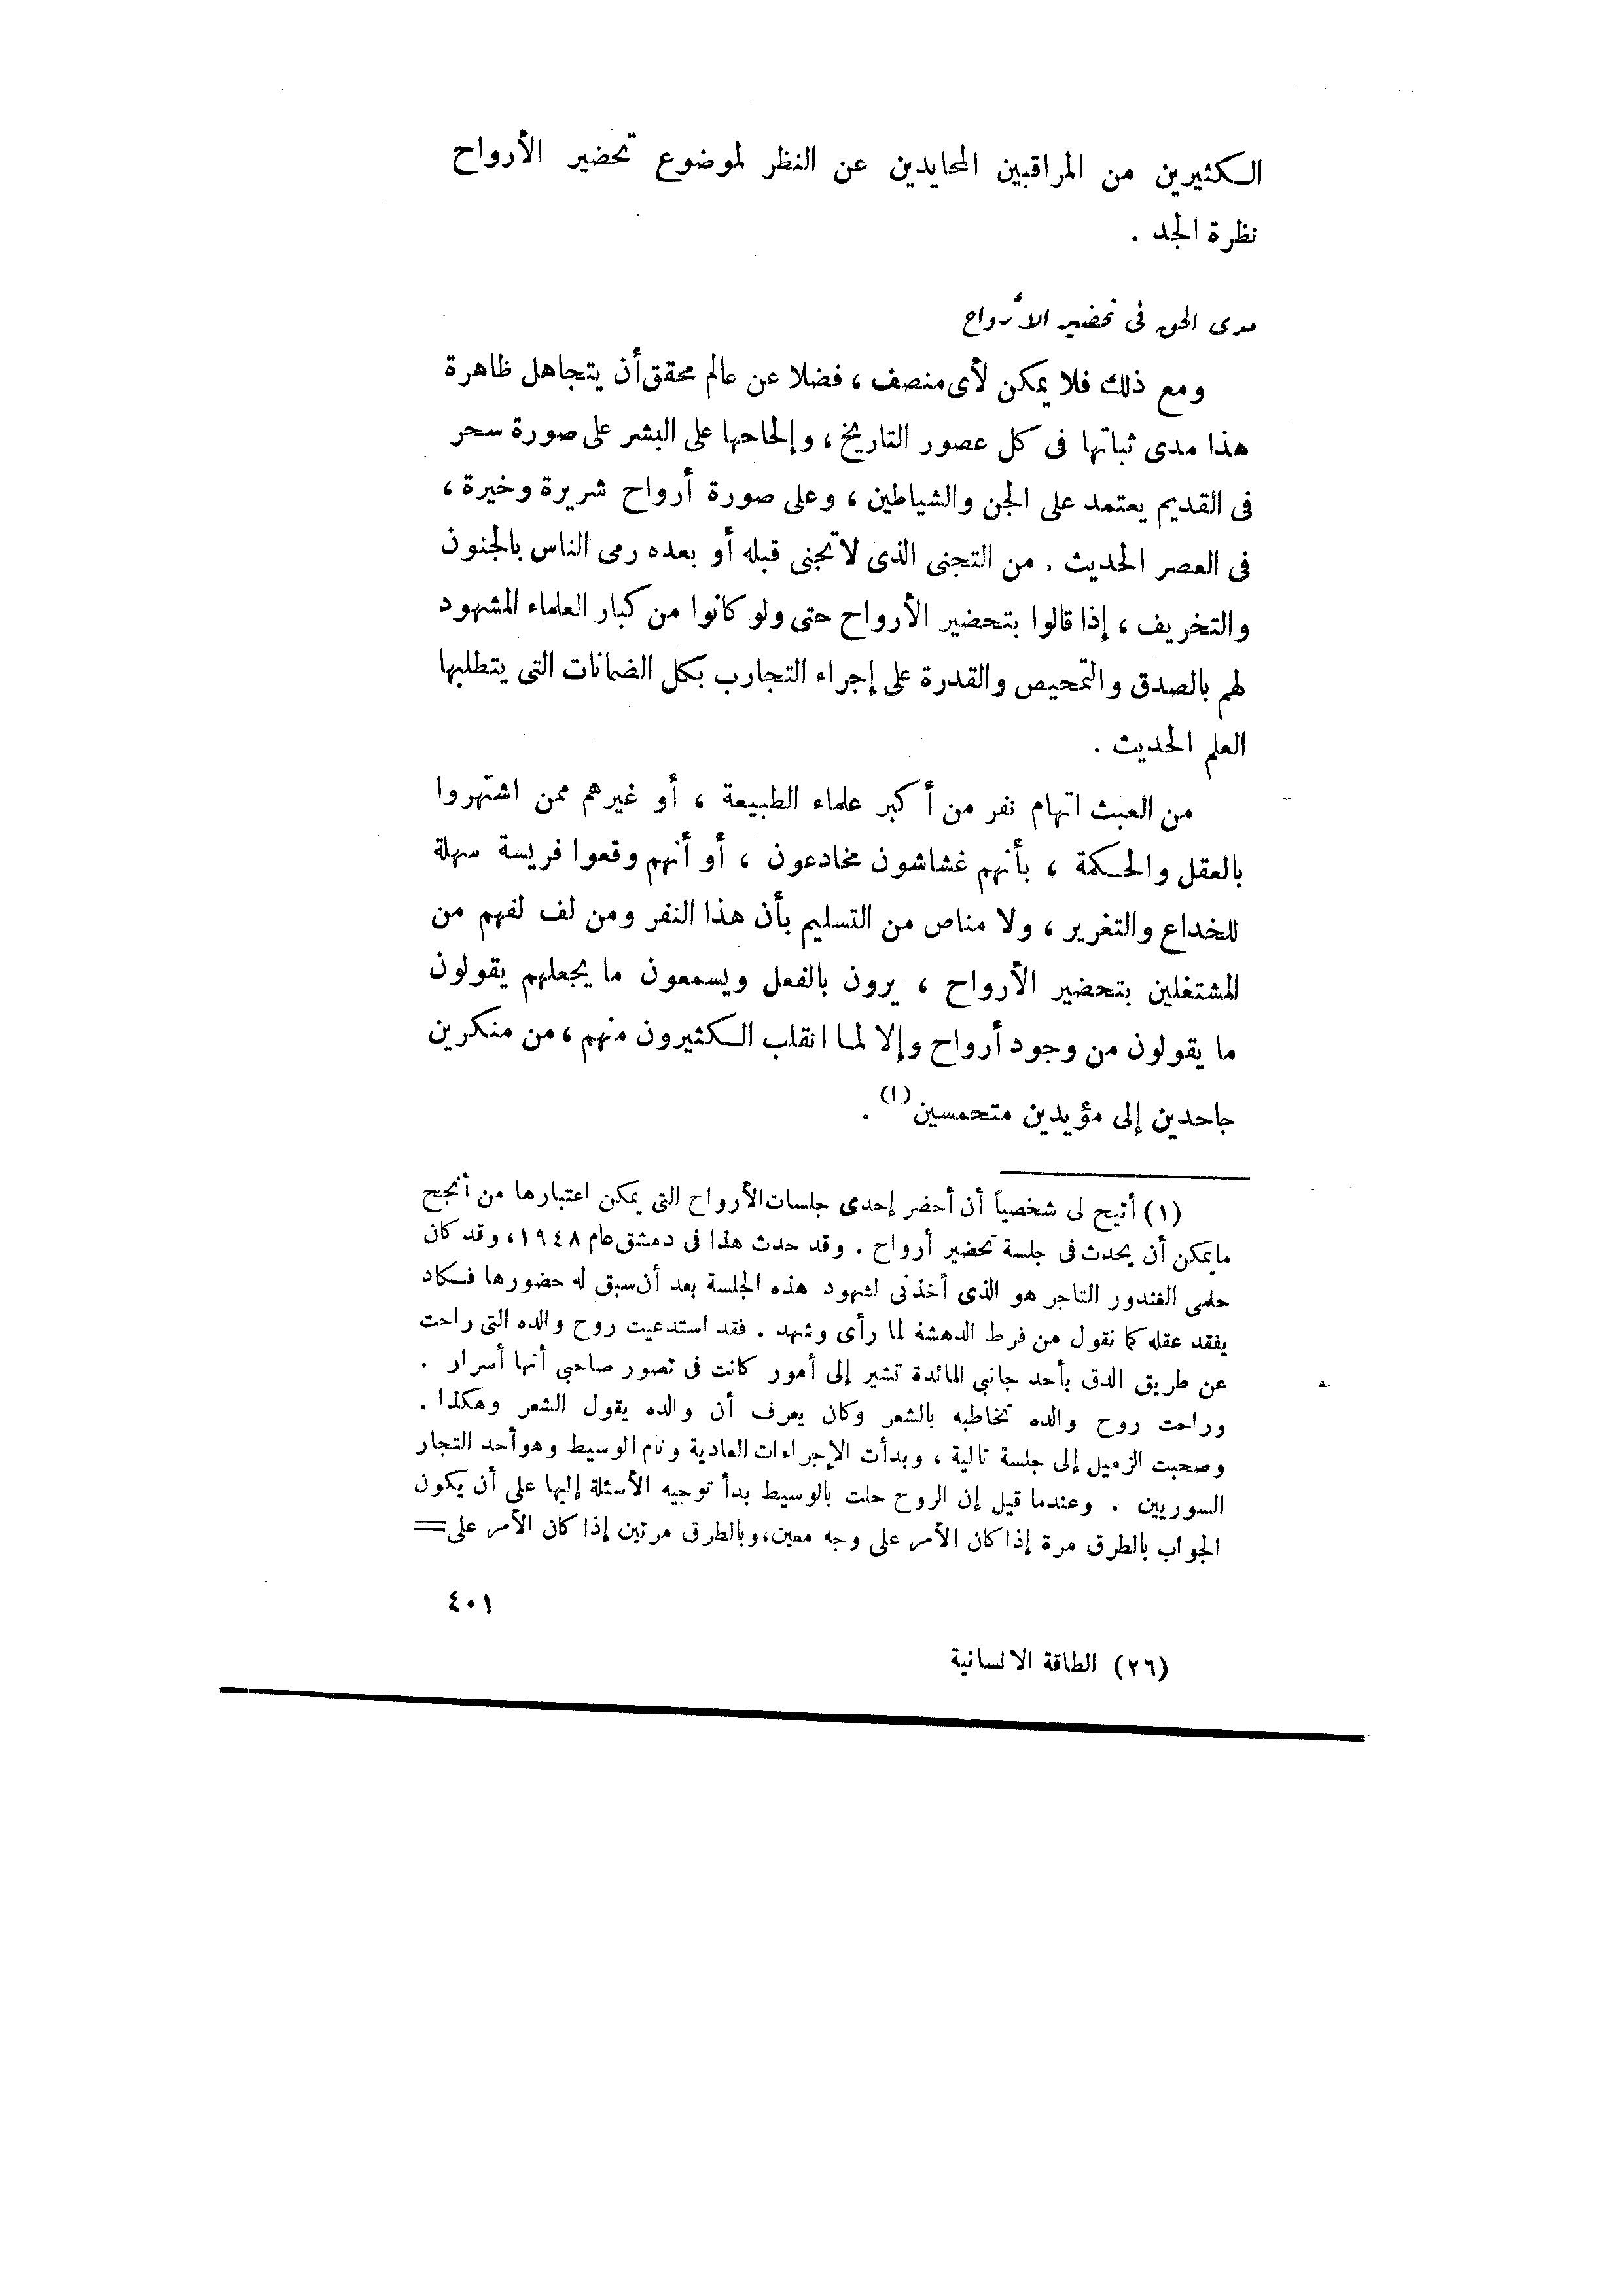 الكثيرين من المراقبين المحايدين عن النظر لموضوع تحضير الأرواح
نظرة الجد .
مدى الحق فى تحضير الأرواح
ومع ذلك فلا يمكن لأى منصف ، فضلا عن عالم محقق أن يتجاهل ظاهرة
هذا مدى ثباتها فى كل عصور التاريخ ، وإلحاحها على البشر على صورة سحر
فى القديم يعتمد على الجن والشياطين ، وعلى صورة أرواح شريرة وخيرة ،
فى العصر الحديث . من التجنى الذى لا تجنى قبله أو بعده رمى الناس بالجنون
والتخريف ، إذا قالوا بتحضير الأرواح حتى ولو كانوا من كبار العلماء المشهود
لهم بالصدق والتمحيص والقدرة على إجراء التجارب بكل الضمانات التى يتطلبها
العلم الحديث .
من العبث اتهام نفر من أكبر علماء الطبيعة ، أو غيرهم ممن اشتهروا
بالعقل والحكمة ، بأنهم غشاشون مخادعون ، أو أنهم وقعوا فريسة سهلة
للخداع والتغرير ، ولا مناص من التسليم بأن هذا النفر ومن لف لفهم من
المشتغلين بتحضير الأرواح ، يرون بالفعل ويسمعون ما يجعلهم يقولون
ما يقولون من وجود أرواح وإلا لما انقلب الكثيرون منهم ، من منكرين
جاحدين إلى مؤيدين متحمسين (١) .
(١) أتيح لى شخصياً أن أحضر إحدى جلسات الأرواح التى يمكن اعتبارها من أنجح
مايمكن أن يحدث فى جلسة تحضير أرواح . وقد حدث هذا فى دمشق عام ١٩٤٨ ، وقد كان
حلمى الغندور التاجر هو الذى أخذنى لشهود هذه الجلسة بعد أن سبق له حضورها فكاد
يفقد عقله كما نقول من فرط الدهشة لما رأى وشهد . فقد استدعيت روح والده التى راحت
عن طريق الدق بأحد جانبى المائدة تشير إلى أمور كانت فى تصور صاحبى أنها أسرار .
وراحت روح والده تخاطبه بالشعر وكان يعرف أن والده يقول الشعر وهكذا .
وصحبت الزميل إلى جلسة تالية ، وبدأت الإجراءات العادية ونام الوسيط وهو أحد التجار
السوريين . وعندما قيل إن الروح حلت بالوسيط بدأ توجيه الأسئلة إليها على أن يكون
الجواب بالطرق مرة إذا كان الأمر على وجه معين، وبالطرق مرتين إذا كان الأمر على =
٤٠١
(٢٦) الطاقة الانسانية